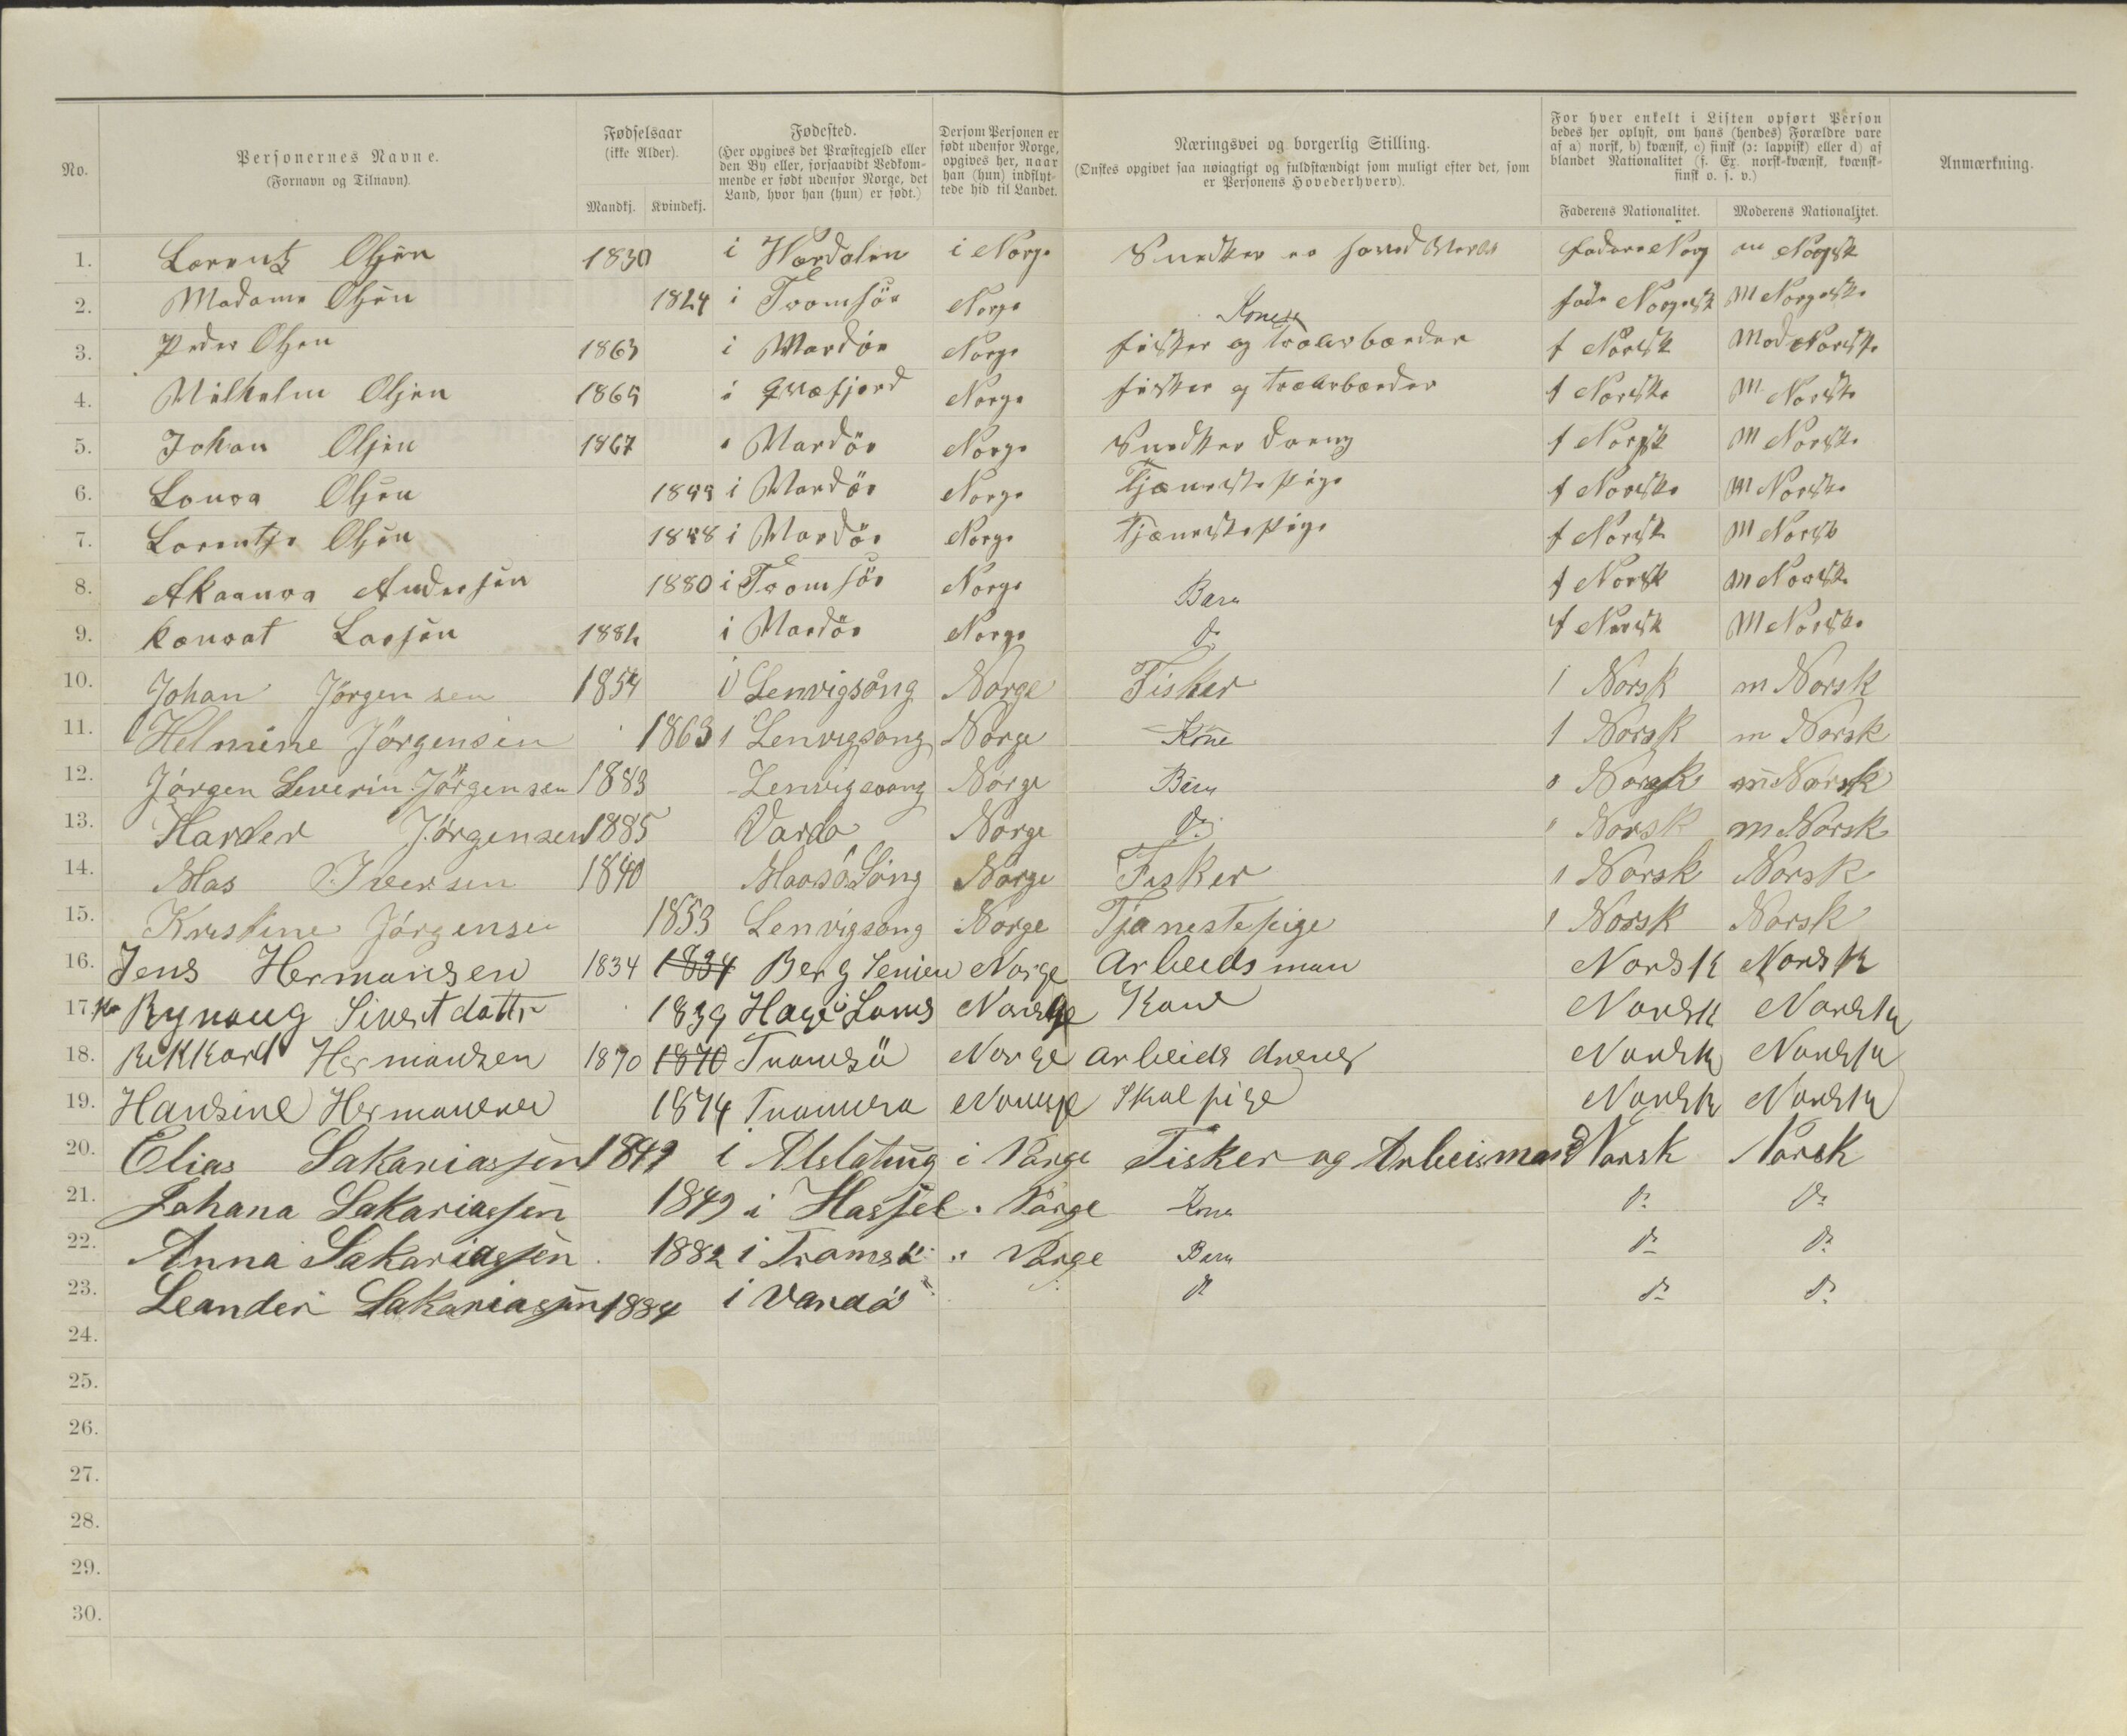 No.
Personernes Navne.
(Fornavn og Tilnavn).
Fødselsaar
(ikke Alder).
Mandkj. Kvindekj.
Fødested.
(Her opgives det Præstegjeld eller
den By eller, forsaavidt Vedkom-
mende er født udenfor Norge, det
Land, hvor han (hun) er født.)
Dersom Personen er
født udenfor Norge,
opgives her, naar
han (hun) indflyt-
tede hid til Landet.
Næringsvei og borgerlig Stilling.
(Ønskes opgivet saa nøiagtigt og fuldstændigt som muligt efter det, som
er Personens Hovederhverv).
For hver enkelt i Listen opført Person
bedes her oplyst, om hans (hendes) Forældre vare
af a) norsk, b) kvænsk, c) finsk (ɔ: lappisk) eller d) af
blandet Nationalitet (f. Ex. norsk-kvænsk, kvænsk-
finsk o. s. v.)
Faderens Nationalitet. Moderens Nationalitet.
Anmærkning.
1. Lorentz Olsen 1830 i Werdalen i Norge Snedker
2. Madame Olsen 1824 i Tromsöe Norge Kone fade Norgesk M Norgeske
3. Peder Olsen 1863 i Wardöe Norge fisker og f Norsk Mod Norske
4. Wilhelm Olsen 1865 i Qvæfjord Norge fisker og f Norske M Norske
5. Johan Olsen 1867 Wardöe Norge Snedker dreng f Norsk M Norske
6. Loura Olsen i Wardöe Norge Tjænestepige f Norske M Norske
7. Lorentze Olsen i Wardöe Norge Tjænestepige f Norsk M Norsk
8. Andersen 1880 i Tromsöe Norge Barn f Norsk M Norske
9. Larsen i Wardöe Norge Do f Norsk M Norske
10. Johan Jörgensen 1854 i Lenvigsöng Norge Fisker f Norsk m Norsk
11. Helmine Jörgensen 1863 i Lenvigsong Norge Kone f Norsk m Norsk
12. Jörgen Severin Jörgensen 1883 Lenvigsoong Norge Barn Norsk m Norsk
13. Harder Jörgensen 1885 Vardo Norge Do Norsk m Norsk
14. Mas Iversen 1840 Maasö Söng Norge Fisker Norsk Norsk
15. Kristine Jörgensen 1853 Lenvigsong Norge Tjanestepige Norsk Norsk
16. Jens Hermansen 1834 1834 Berg Senien Norge Arbeidsman Norsk Norsk
17. Sivertdattr 1839 Norge Kone Norsk Norsk
18. Rikkard Hermansen 1870 1870 Tromsö Norge arbeids dreng Norsk Norsk
19. Hansine Hermansen 1874 Norge Skolepige Norsk Norsk
20. Elias Sakariassen 1849 i Alslahug i Norge Fisker og Arbeismand Norsk Norsk
21. Johana Sakariassen 1849 i Hassel " Norge Kone Do Do
22. Anna Sakariassen 1882 i Tromsö " Norge Barn Do Do
23. Leander Sakariassen 1884 i Vardö Do Do Do
24.
25.
26.
27.
28.
29.
30.